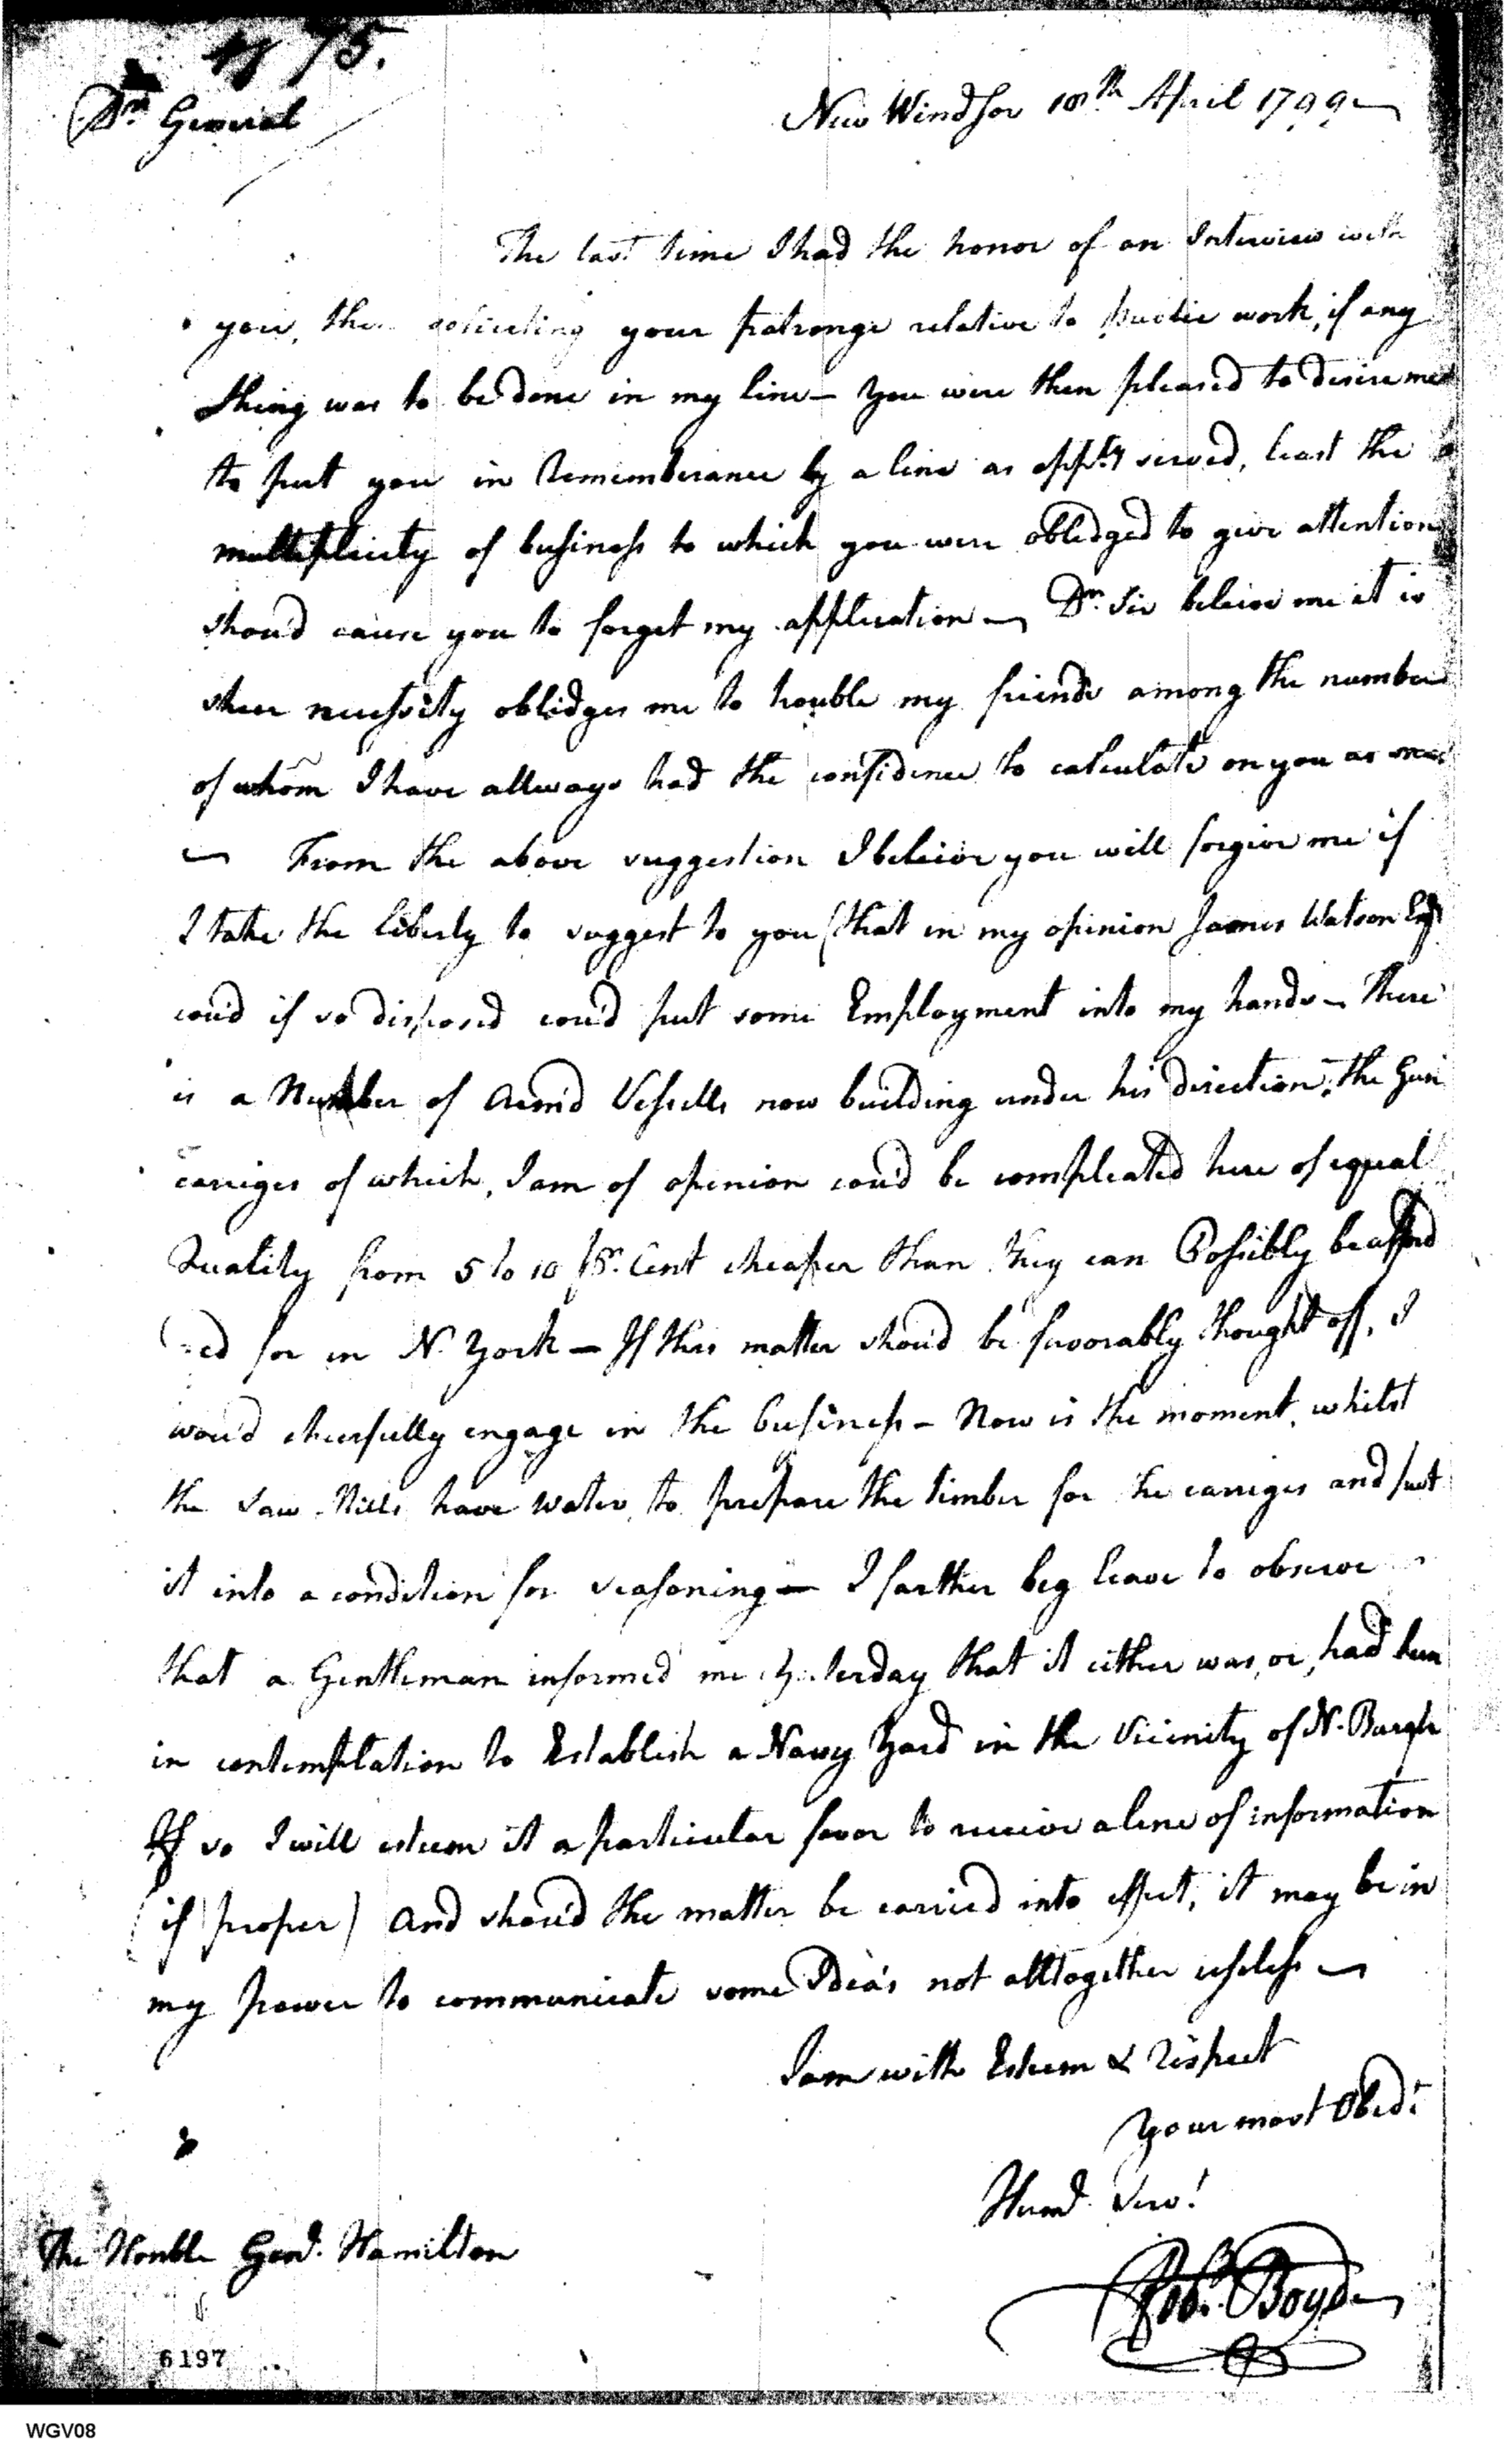 75.
Dr. General
New Windsor 18th April 1799
The last time I had the honor of an Interview with
you, then soliciting your patronge relative to public work, if any
thing was to be done in my line – you were then pleased to desire me
to put you in Rememberance by a line as oppty served, least the
multiplicity of business to which you were obledged to give attention
shou'd cause you to forget my application – Dr. Sir beleive me it is
sheer necessity oblidges me to trouble my friends among the number
of whom I have allways had the confidence to calculate on you as one
– From the above suggestion I beleive you will forgive me if
I take the liberty to suggest to you (that in my opinion James Watson Esqr
cou'd if so disposed cou'd put some Employment into my hands – There
is a Number of Arm'd Vessells now building under his direction, the Gun
carriges of which, I am of openion cou'd be compleated here of equal
Quality from 5 to 10 pr. Cent cheaper than they can Possibly be afford
ed for in N. York – If this matter shou'd be favorably thought off, I
wou'd cheerfully engage in the business – Now is the moment, whilst
the Saw Mills have water, to prepare the timber for the carriges and put
it into a condition for seasoning – I farther beg leave to observe
that a Gentleman informed me yesterday that it either was, or, had been
in contemplation to Establish a Navy Yard in the Vicinity of N. Burgh
If so I will esteem it a particular favor to receive a line of information
(if proper) and shou'd the matter be carried into effect, it may be in
my power to communicate some Idea's not alltogether useless –
I am with Esteem & respect
Your most Obedt
Humd Serv!
Robt. Boyd
The Honble Genl. Hamilton
6197
WGV08